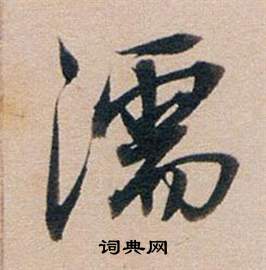 濡
词典网